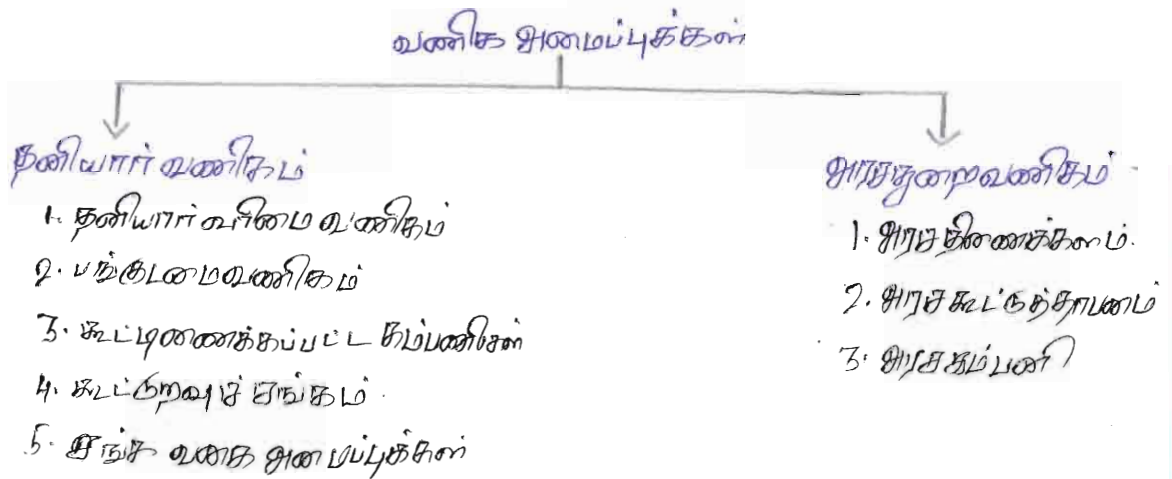 வணிக அமைப்புக்கள்
தனியார் வணிகம்
1. தனியார் உரிமை வணிகம்
2. பங்குடமைவணிகம்
3. கூட்டிணைக்கப்பட்ட கம்பனிகள்
4. கூட்டுறவுச் சங்கம்
5. சங்க வகை அமைப்புக்கள்
அரசதுறைவணிகம்
1. அரச திணைக்களம்.
2. அரச கூட்டுத்தாபனம்
3. அரச கம்பனி